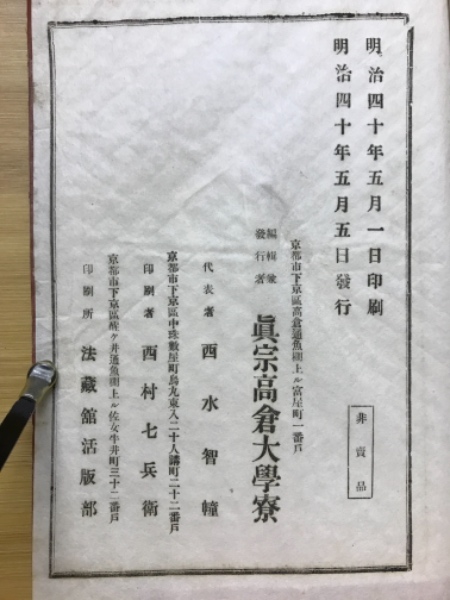 明治四十年五月一日印刷
明治四十年五月五日發行
非賣品
京都市下京區高倉通魚棚上ル富屋町一番戶
編輯兼
發行者 眞宗高倉大學寮
代表者 西水智幢
京都市下京區中珠數屋町烏丸東入二十人講町二十二番戶
印刷者 西村七兵衛
京都市下京區醒ヶ井通魚棚上ル佐女牛井町三十二番戶
印刷所 法藏館活版部